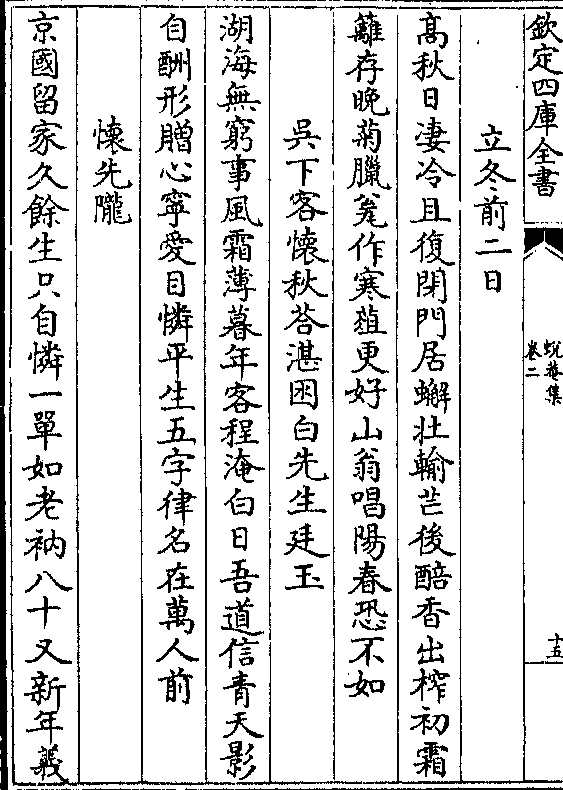 欽定四庫全書
蛻菴集
卷二
十五
立冬前二日
高秋日凄冷且復閉門居蠏壯輸芒後醅香出榨初霜
籬存晚菊臘瓮作寒葅更好山翁唱陽春恐不如
吳下客懷秋荅湛困白先生廷玉
湖海無窮事風霜薄暮年客程淹白日吾道信青天影
自酬形贈心寧愛目憐平生五字律名在萬人前
懷先隴
京國留家久餘生只自憐一單如老衲八十又新年義